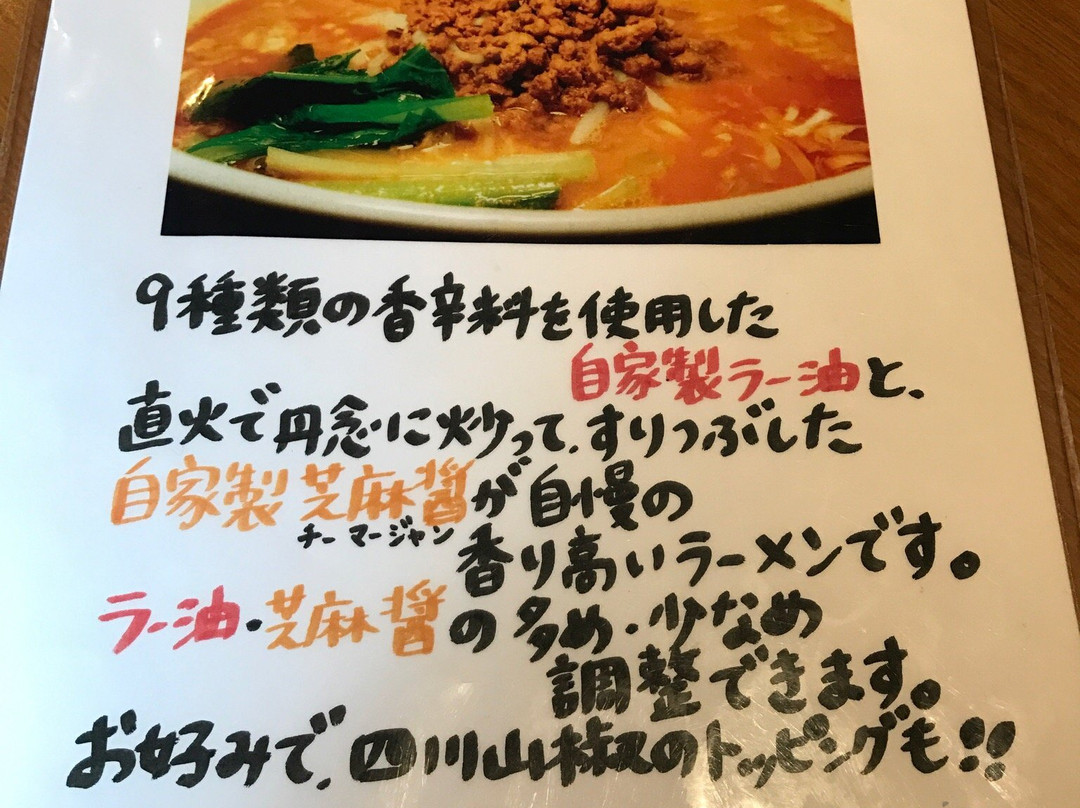 9種類の香辛料を使用した
自家製ラー油と、
直火で丹念に炒って、すりつぶした
自家製芝麻醤が自慢の
チーマージャン
香り高いラーメンです。
ラー油・芝麻醤の多め・少なめ
調整できます。
お好みで、四川山椒のトッピングも!!